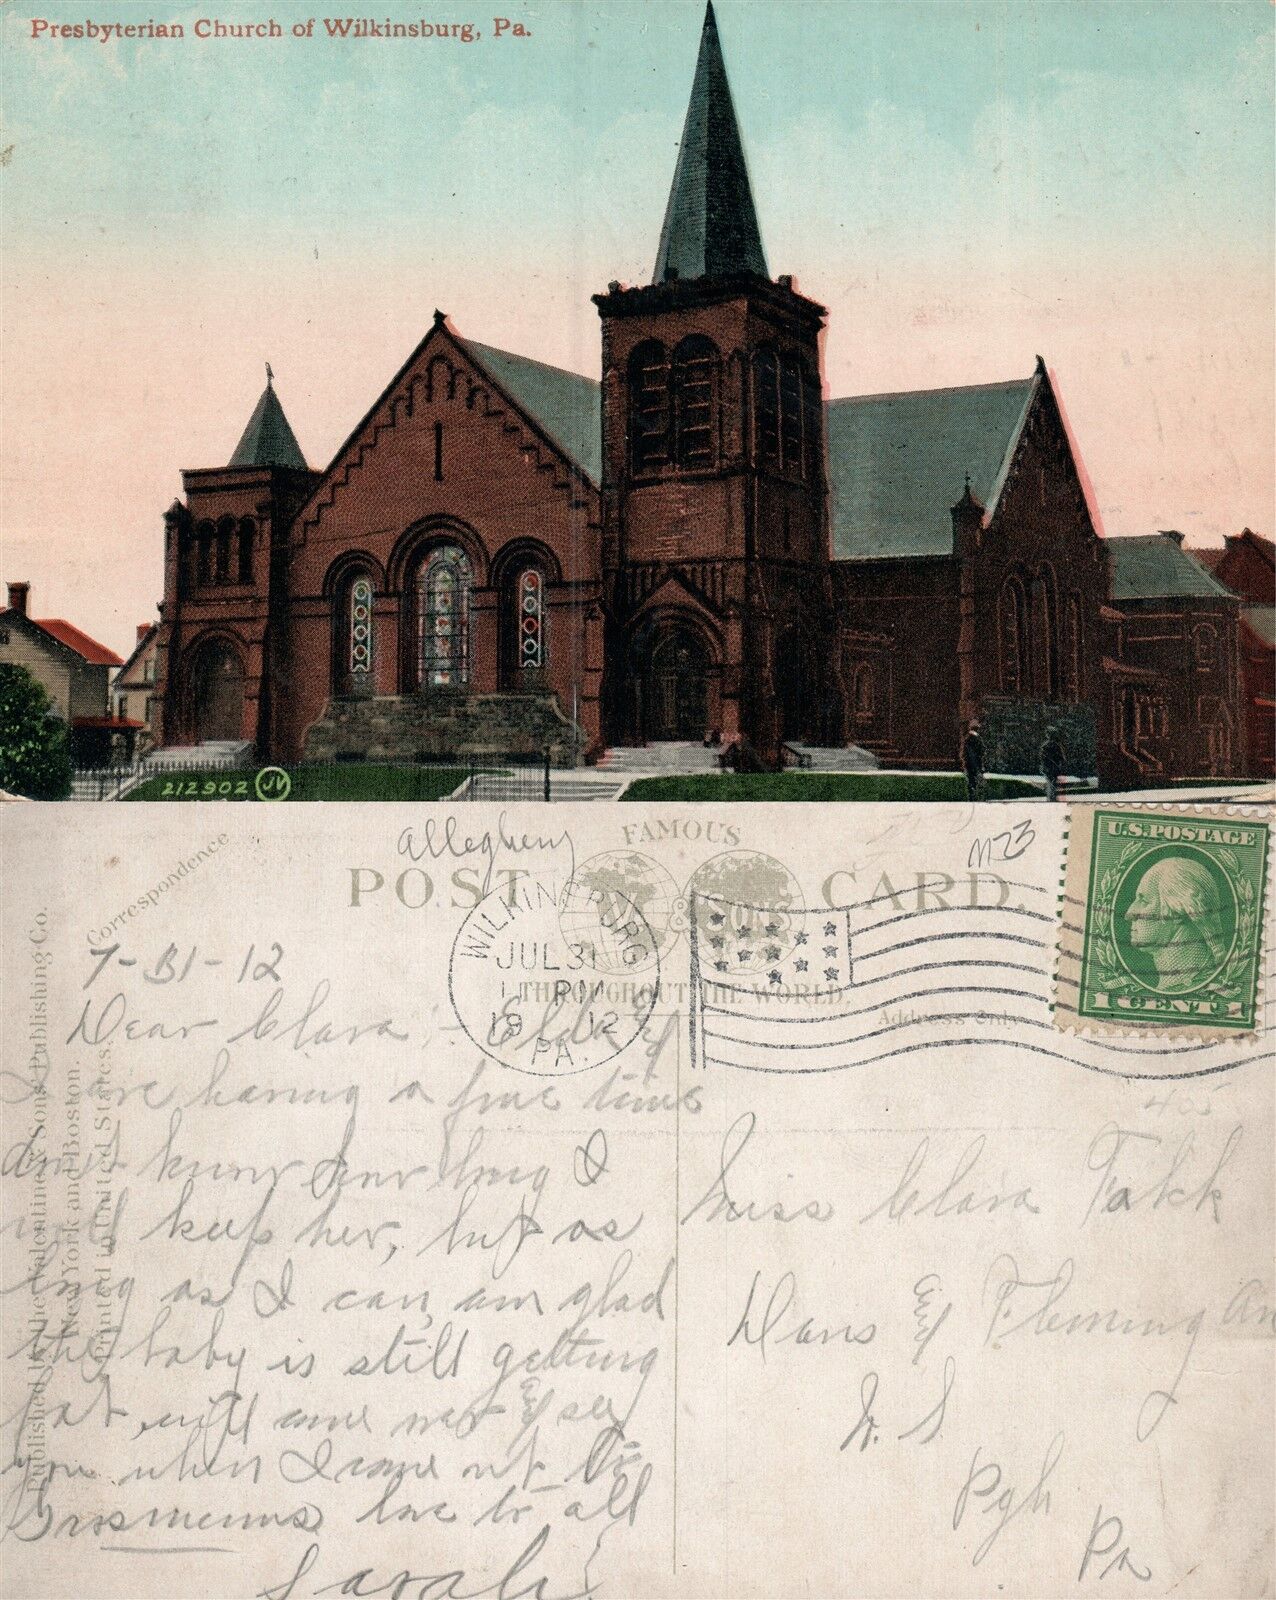 Presbyterian Church of Wilkinsburg, Pa.
212902 JV
Allegheny
M23
FAMOUS
POST CARD.
& SONS
THROUGHOUT THE WORLD.
Address Only
WILKINSBURG
JUL 31
1 PM
19 12
PA.
U.S. POSTAGE
1 CENT 1
Correspondence
Published by The Valentine & Sons Publishing Co.
New York and Boston.
Printed in United States.
7-31-12
Dear Clara :- Elda and
I are having a fine time
don't know how long I
will keep her, but as
long as I can, am glad
the baby is still getting
fat, will come over and see
you when I come up to
Grossmenns love to all
Sarah
405
Miss Clara Fakk
Davis and Fleming
N. S.
Pgh
Pa